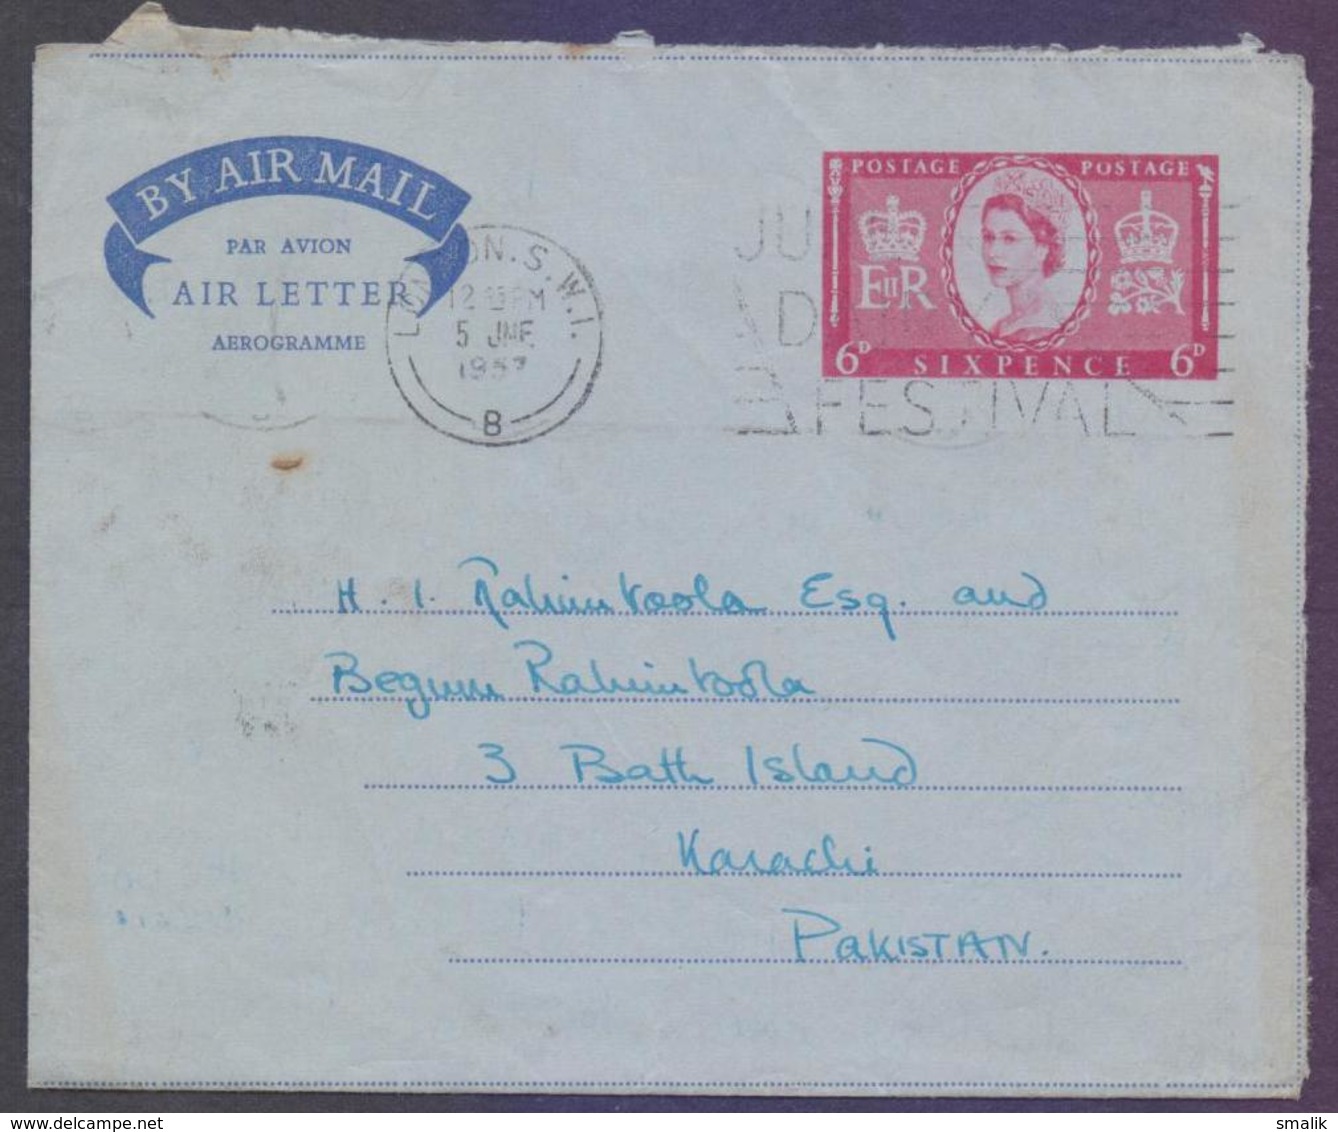 BY AIR MAIL
PAR AVION
AIR LETTER
AEROGRAMME
LONDON. S.W.1.
12 PM
5 JNE
1957
B
POSTAGE POSTAGE
E II R
6D SIXPENCE 6D
FESTIVAL
H. I. Rahimtoola Esq. and
Begum Rahimtoola
3 Bath Island
Karachi
PAKISTAN.
www.delcampe.net
smalik